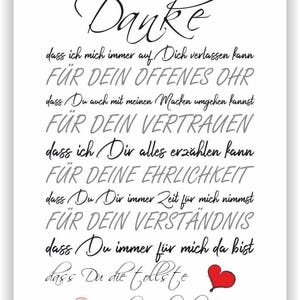 Danke
dass ich mich immer auf Dich verlassen kann
FÜR DEIN OFFENES OHR
dass Du auch mit meinen Macken umgehen kannst
FÜR DEIN VERTRAUEN
dass ich Dir alles erzählen kann
FÜR DEINE EHRLICHKEIT
dass Du Dir immer Zeit für mich nimmst
FÜR DEIN VERSTÄNDNIS
dass Du immer für mich da bist
dass Du die tollste